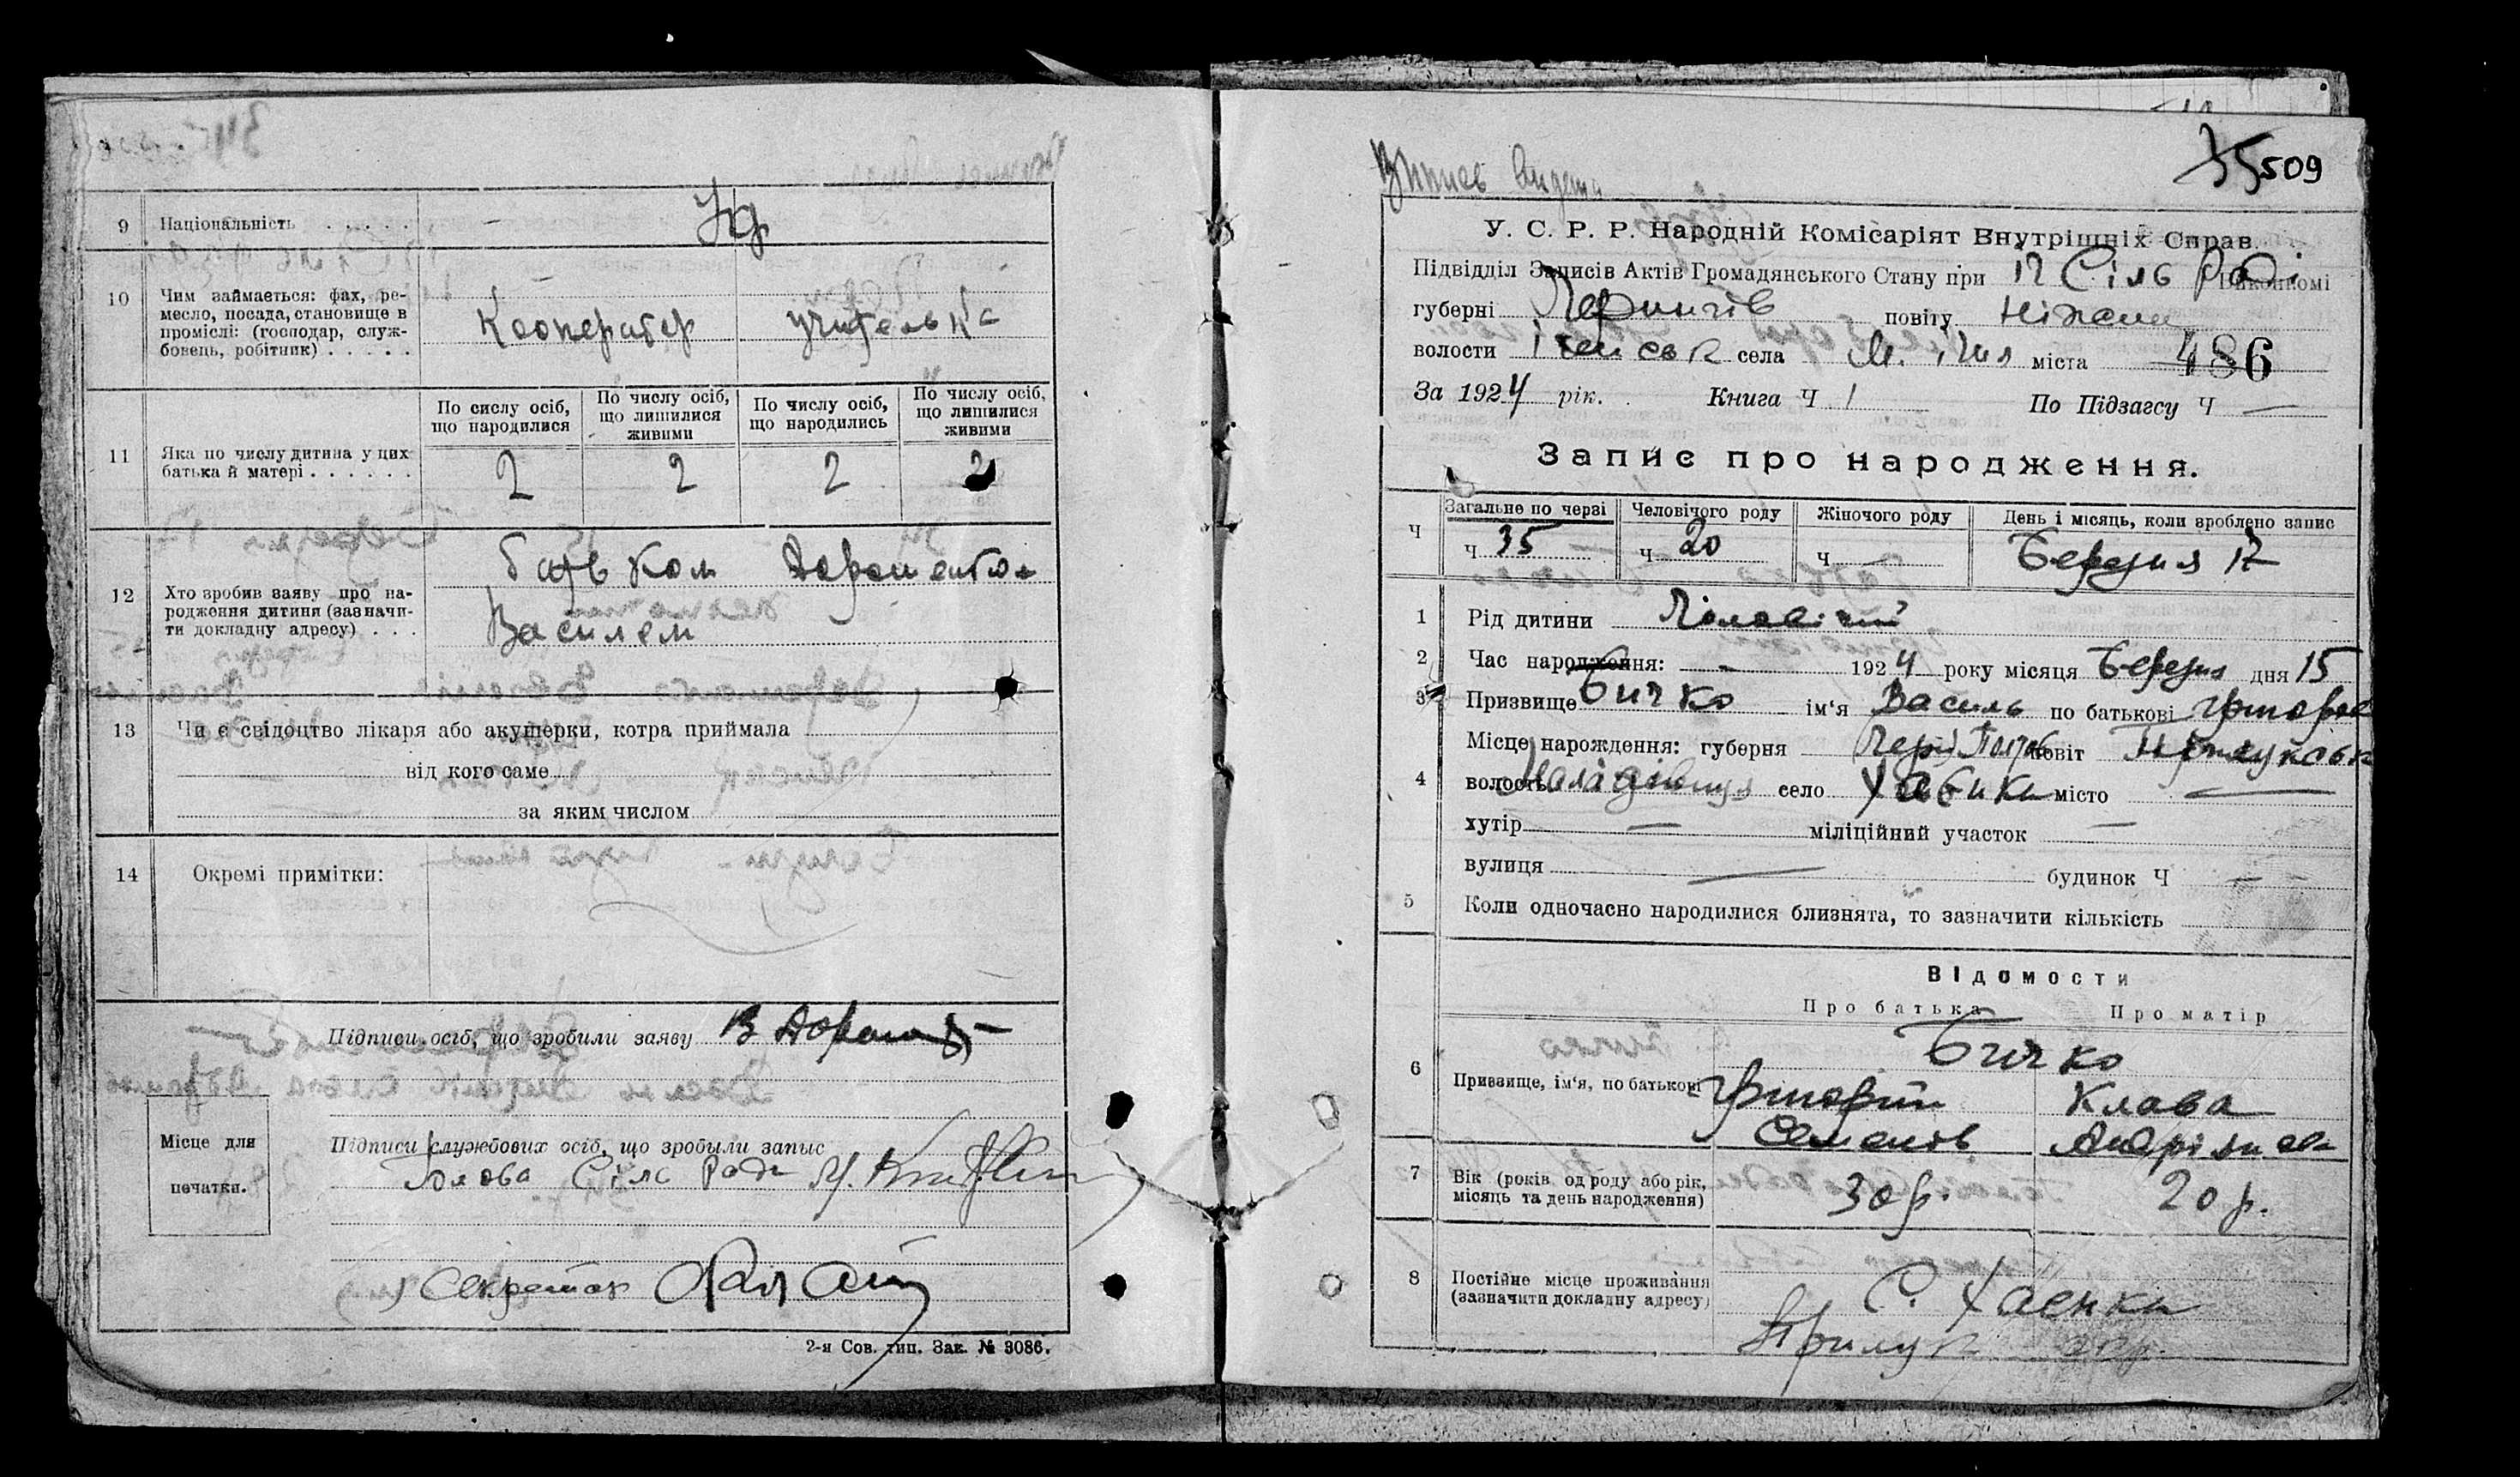 9 Національність . . . . . Укр
10 Чим займається: фах, ре-
месло, посада, становище в
промислі: (господар, служ-
бовець, робітник) . . . . .
Кооператор
учителька
11 Яка по числу дитина у цих
батька й матері . . . . . .
По сислу осіб,
що народилися
По числу осіб,
що лишилися
живими
По числу осіб,
що народились
По числу осіб,
що лишилися
живими
2 2 2 2
12 Хто зробив заяву про на-
родження дитини (зазначи-
ти докладну адресу) . . .
батьком
Василем
13 Чи є свідоцтво лікаря або акушерки, котра приймала
від кого саме
за яким числом
14 Окремі примітки:
Підписи осіб, що зробили заяву
Місце для
печатки.
Підписи службових осіб, що зробыли запыс
Голова Сіль Ради
Секретар
2-я Сов. тип. Зак. № 3086.
35 509
У. С. Р. Р. Народній Комісаріят Внутрішніх Справ.
Підвідділ Записів Актів Громадянського Стану при Сіль Раді Виконкомі
губерні Чернигів повіту Ніжин
волости села міста 486
За 1924 рік. Книга Ч 1 По Підзагсу Ч —
Запис про народження.
Ч
Загальне по черзі
Ч 35
Человічого роду
Ч 20
Жіночого роду
Ч —
День і місяць, коли зроблено запис
Березня 17
1 Рід дитини Чоловічий
2 Час народження: — 1924 року місяця Березня дня 15
3 Призвище Бичко ім‘я Василь по батькові
4 Місце нарождення: губерня повіт
волость село місто —
хутір — міліційний участок —
вулиця — будинок Ч —
5 Коли одночасно народилися близнята, то зазначити кількість
Відомости
Про батька Про матір
6 Призвище, ім‘я, по батькові
Бичко
Григорій Клава
Семенов Андріивна
7 Вік (років од роду або рік,
місяць та день народження)
30 р. 20 р.
8 Постійне місце проживання
(зазначити докладну адресу)
С. Хаенки
Прилук окр.